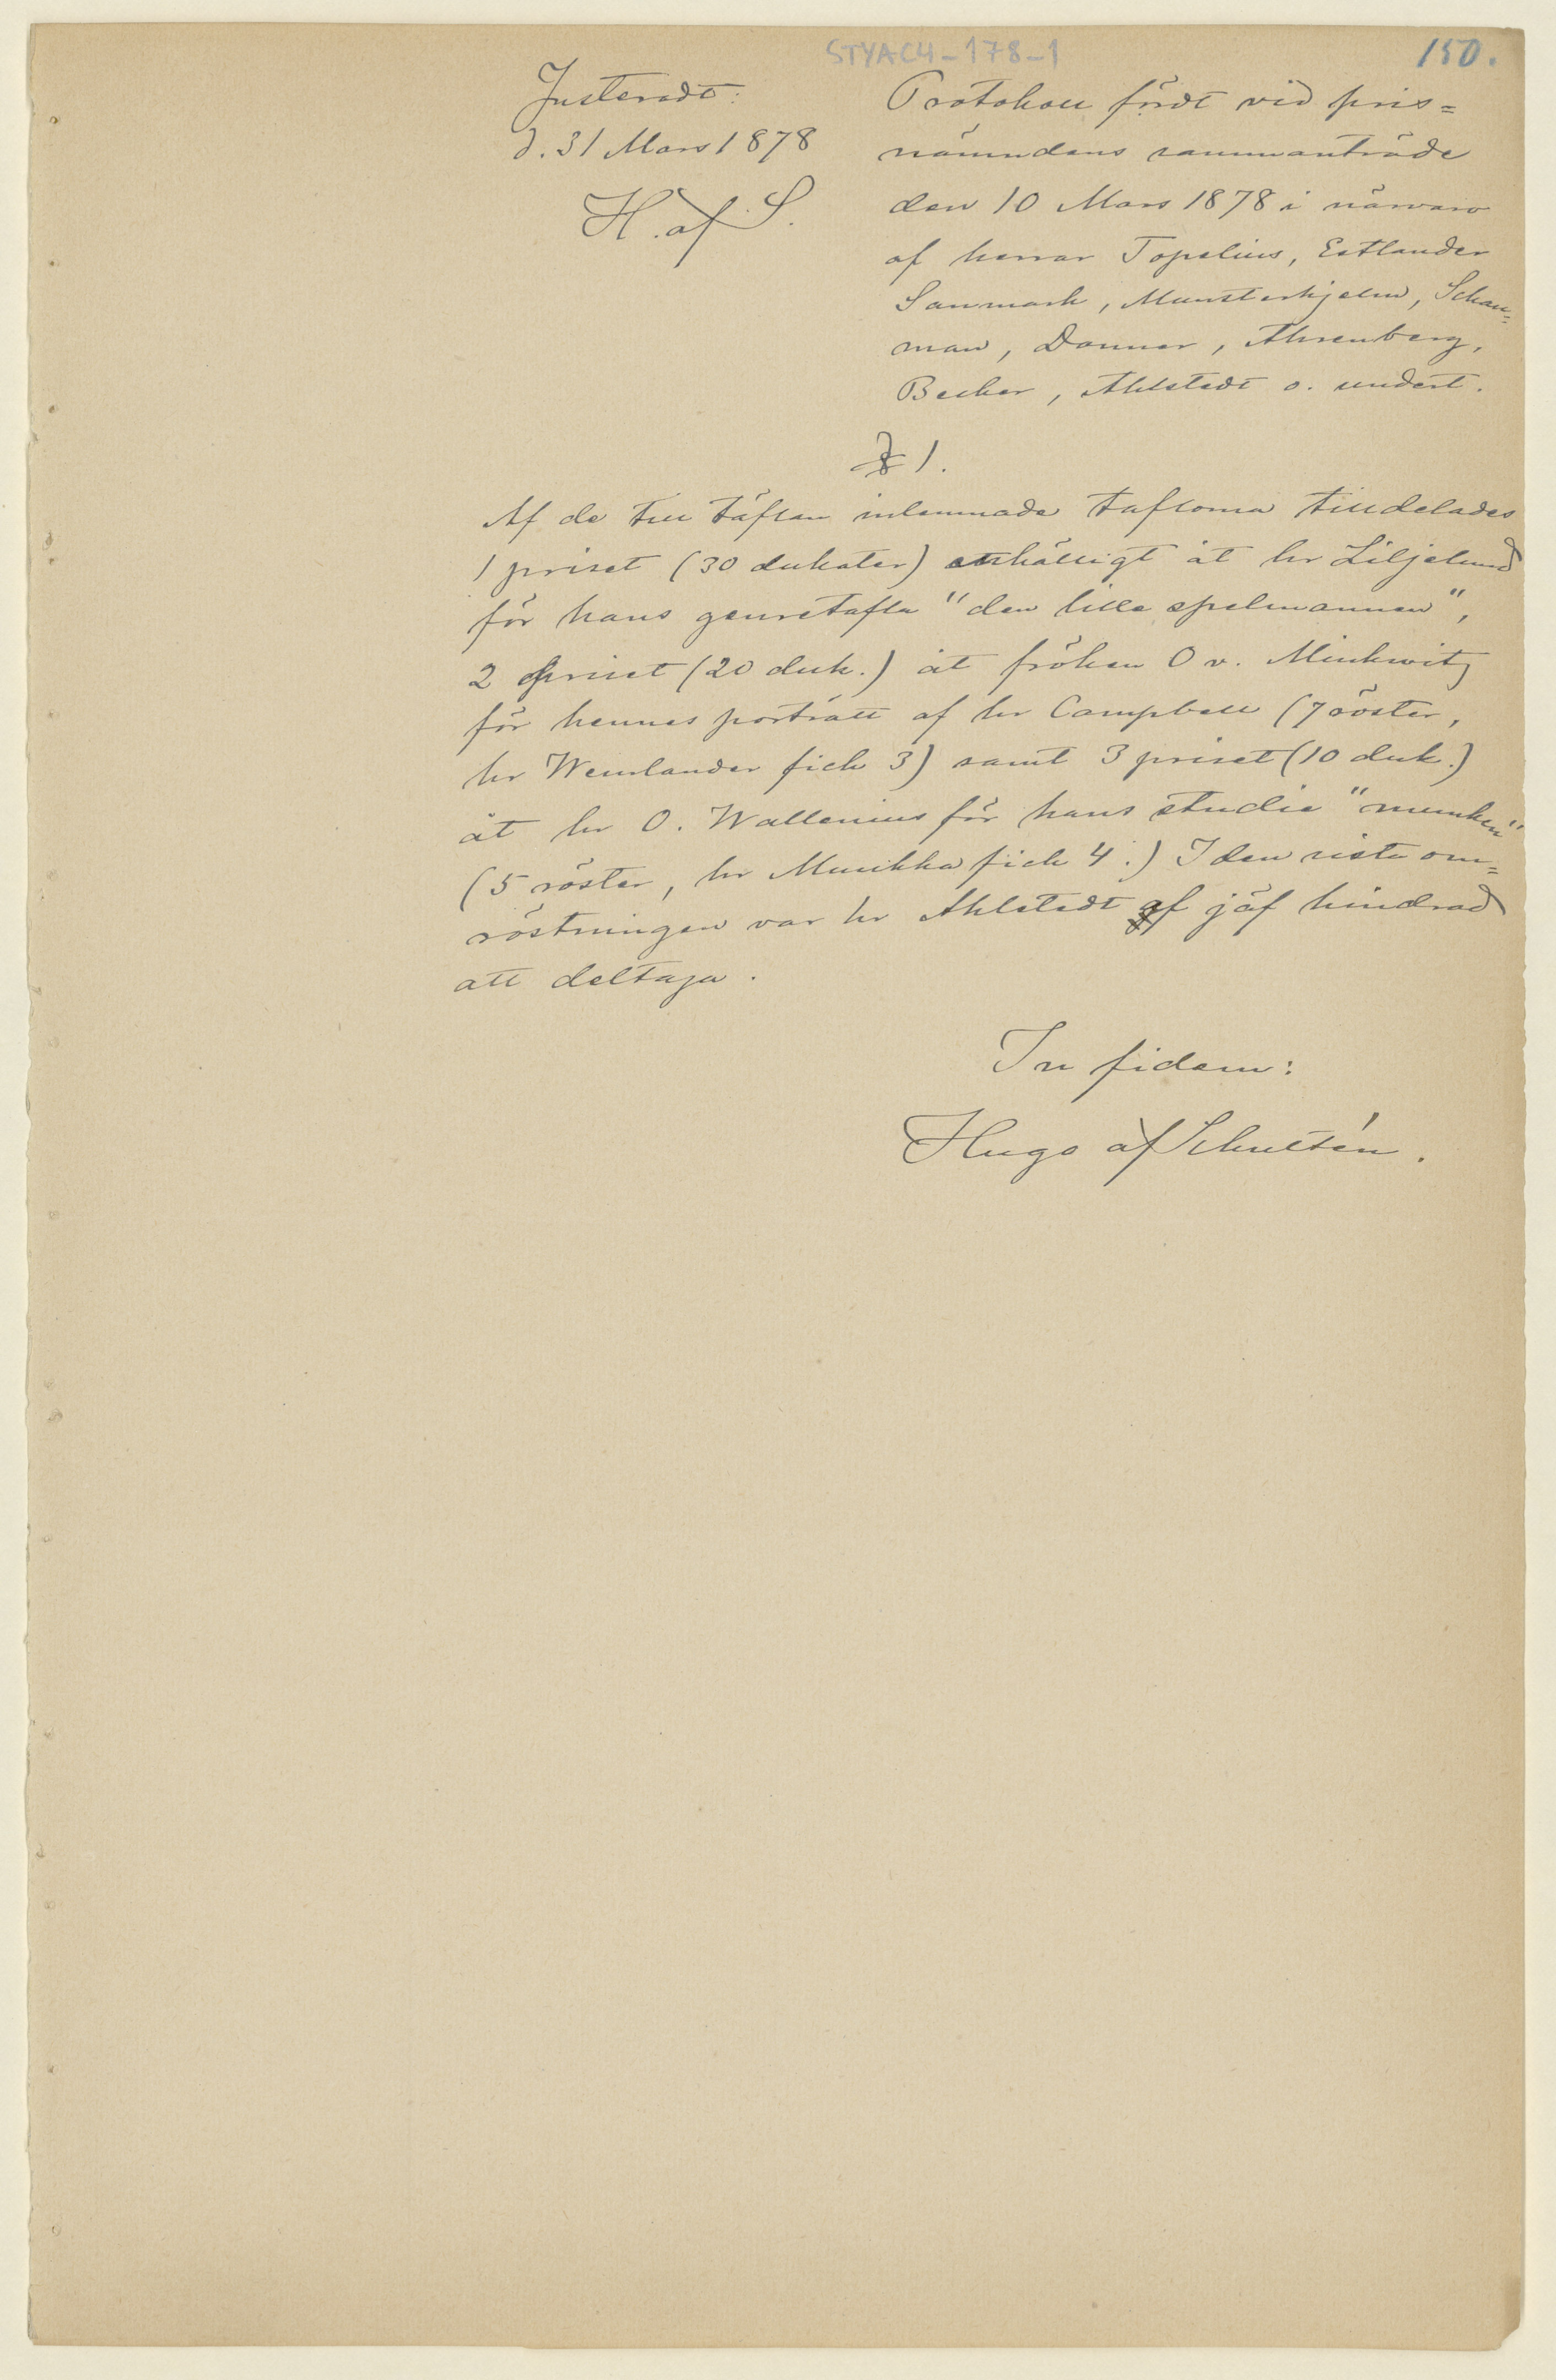 STYAC4-178-1
150.
Justeradt:
d. 31 Mars 1878
H. af S.
Protokoll fördt vid pris=
nämndens sammanträde
den 10 Mars 1878 i närvaro
af herrar Topelius, Estlander
Sanmark, Munsterhjelm, Schau=
man, Donner, Ahrenberg,
Becker, Ahlstedt o. undert.
§ 1.
Af de till täflan inlemnade taflorna tilldelades
1 priset (30 dukater) enhälligt åt hr Liljelund
för hans genretafla "den lille spelmannen",
2 priset (20 duk.) åt fröken O v. Minkwitz
för hennes porträtt af hr Campbell (7 röster,
hr Wemlander fick 3) samt 3 priset (10 duk.)
åt hr O. Wallenius för hans studie "munken"
(5 röster, hr Munkka fick 4.) I den sista om=
röstningen var hr Ahlstedt af jäf hindrad
att deltaga.
In fidem:
Hugo af Schultén.